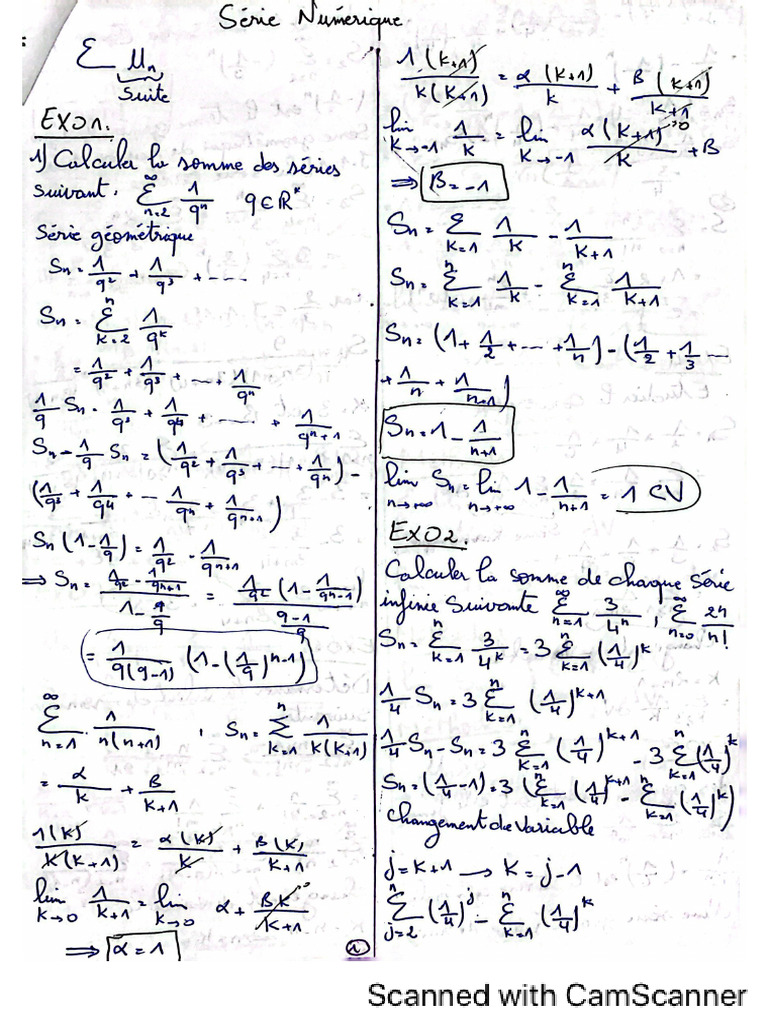 Série Numérique
Σ Un
suite
EX01.
1) Calculer la somme des séries
suivant. ∞Σn=2 1/q^n q∈R*
Série géométrique
Sn = 1/q² + 1/q³ + ....
Sn = nΣk=2 1/q^k
= 1/q² + 1/q³ + ... + 1/q^n
1/q Sn = 1/q³ + 1/q⁴ + ..... + 1/q^(n+1)
Sn - 1/q Sn = (1/q² + 1/q³ + ... + 1/q^n) -
(1/q³ + 1/q⁴ + ... 1/q^n + 1/q^(n+1))
Sn (1 - 1/q) = 1/q² - 1/q^(n+1)
⇒ Sn = (1/q² - 1/q^(n+1)) / (1 - 1/q) = (1/q² (1 - 1/q^(n-1))) / ((q-1)/q)
= 1/(q(q-1)) (1 - (1/q)^(n-1))
∞Σn=1 . 1/(n(n+1)) , Sn = nΣk=1 1/(k(k+1))
= α/k + B/(k+1)
1(k)/(k(k+1)) = α(k)/k + B(k)/(k+1)
lim k→0 1/(k+1) = lim k→0 α + Bk/(k+1) →0
⇒ α = 1
1
1(k+1)/(k(k+1)) = α(k+1)/k + B(k+1)/(k+1)
lim k→-1 1/k = lim k→-1 α(k+1)/k →0 + B
⇒ B = -1
Sn = Σk=1 1/k - 1/(k+1)
Sn = nΣk=1 1/k - nΣk=1 1/(k+1)
Sn = (1 + 1/2 + ... + 1/n) - (1/2 + 1/3 ...
+ 1/n + 1/(n+1))
Sn = 1 - 1/(n+1)
lim n→+∞ Sn = lim n→+∞ 1 - 1/(n+1) = 1 CV
EX02.
Calculer la somme de chaque série
infinie suivante ∞Σn=1 3/4^n , ∞Σn=0 2n/n!
Sn = nΣk=1 3/4^k = 3 nΣk=1 (1/4)^k
1/4 Sn = 3 nΣk=1 (1/4)^(k+1)
1/4 Sn - Sn = 3 nΣk=1 (1/4)^(k+1) - 3 nΣk=1 (1/4)^k
Sn = (1/4 - 1) = 3 (nΣk=1 (1/4)^(k+1) - nΣk=1 (1/4)^k)
changement de variable
j = k+1 → k = j-1
nΣj=2 (1/4)^j - nΣk=1 (1/4)^k
Scanned with CamScanner